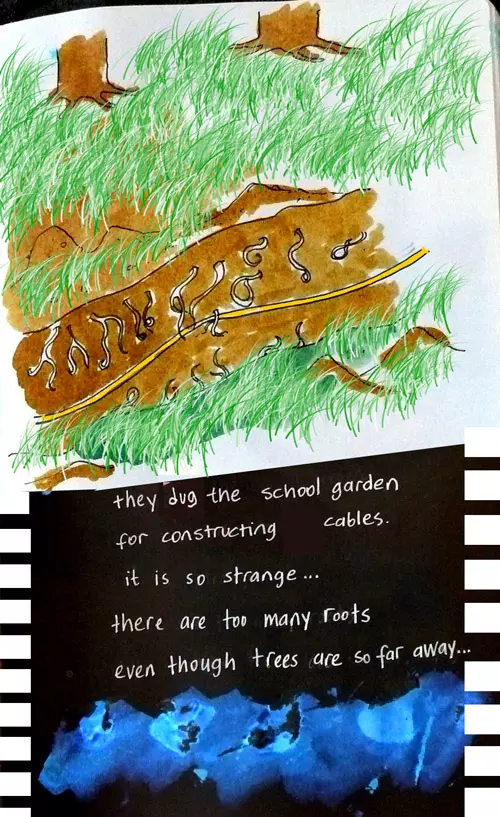 they dug the school garden
for constructing cables.
it is so strange...
there are too many roots
even though trees are so far away...